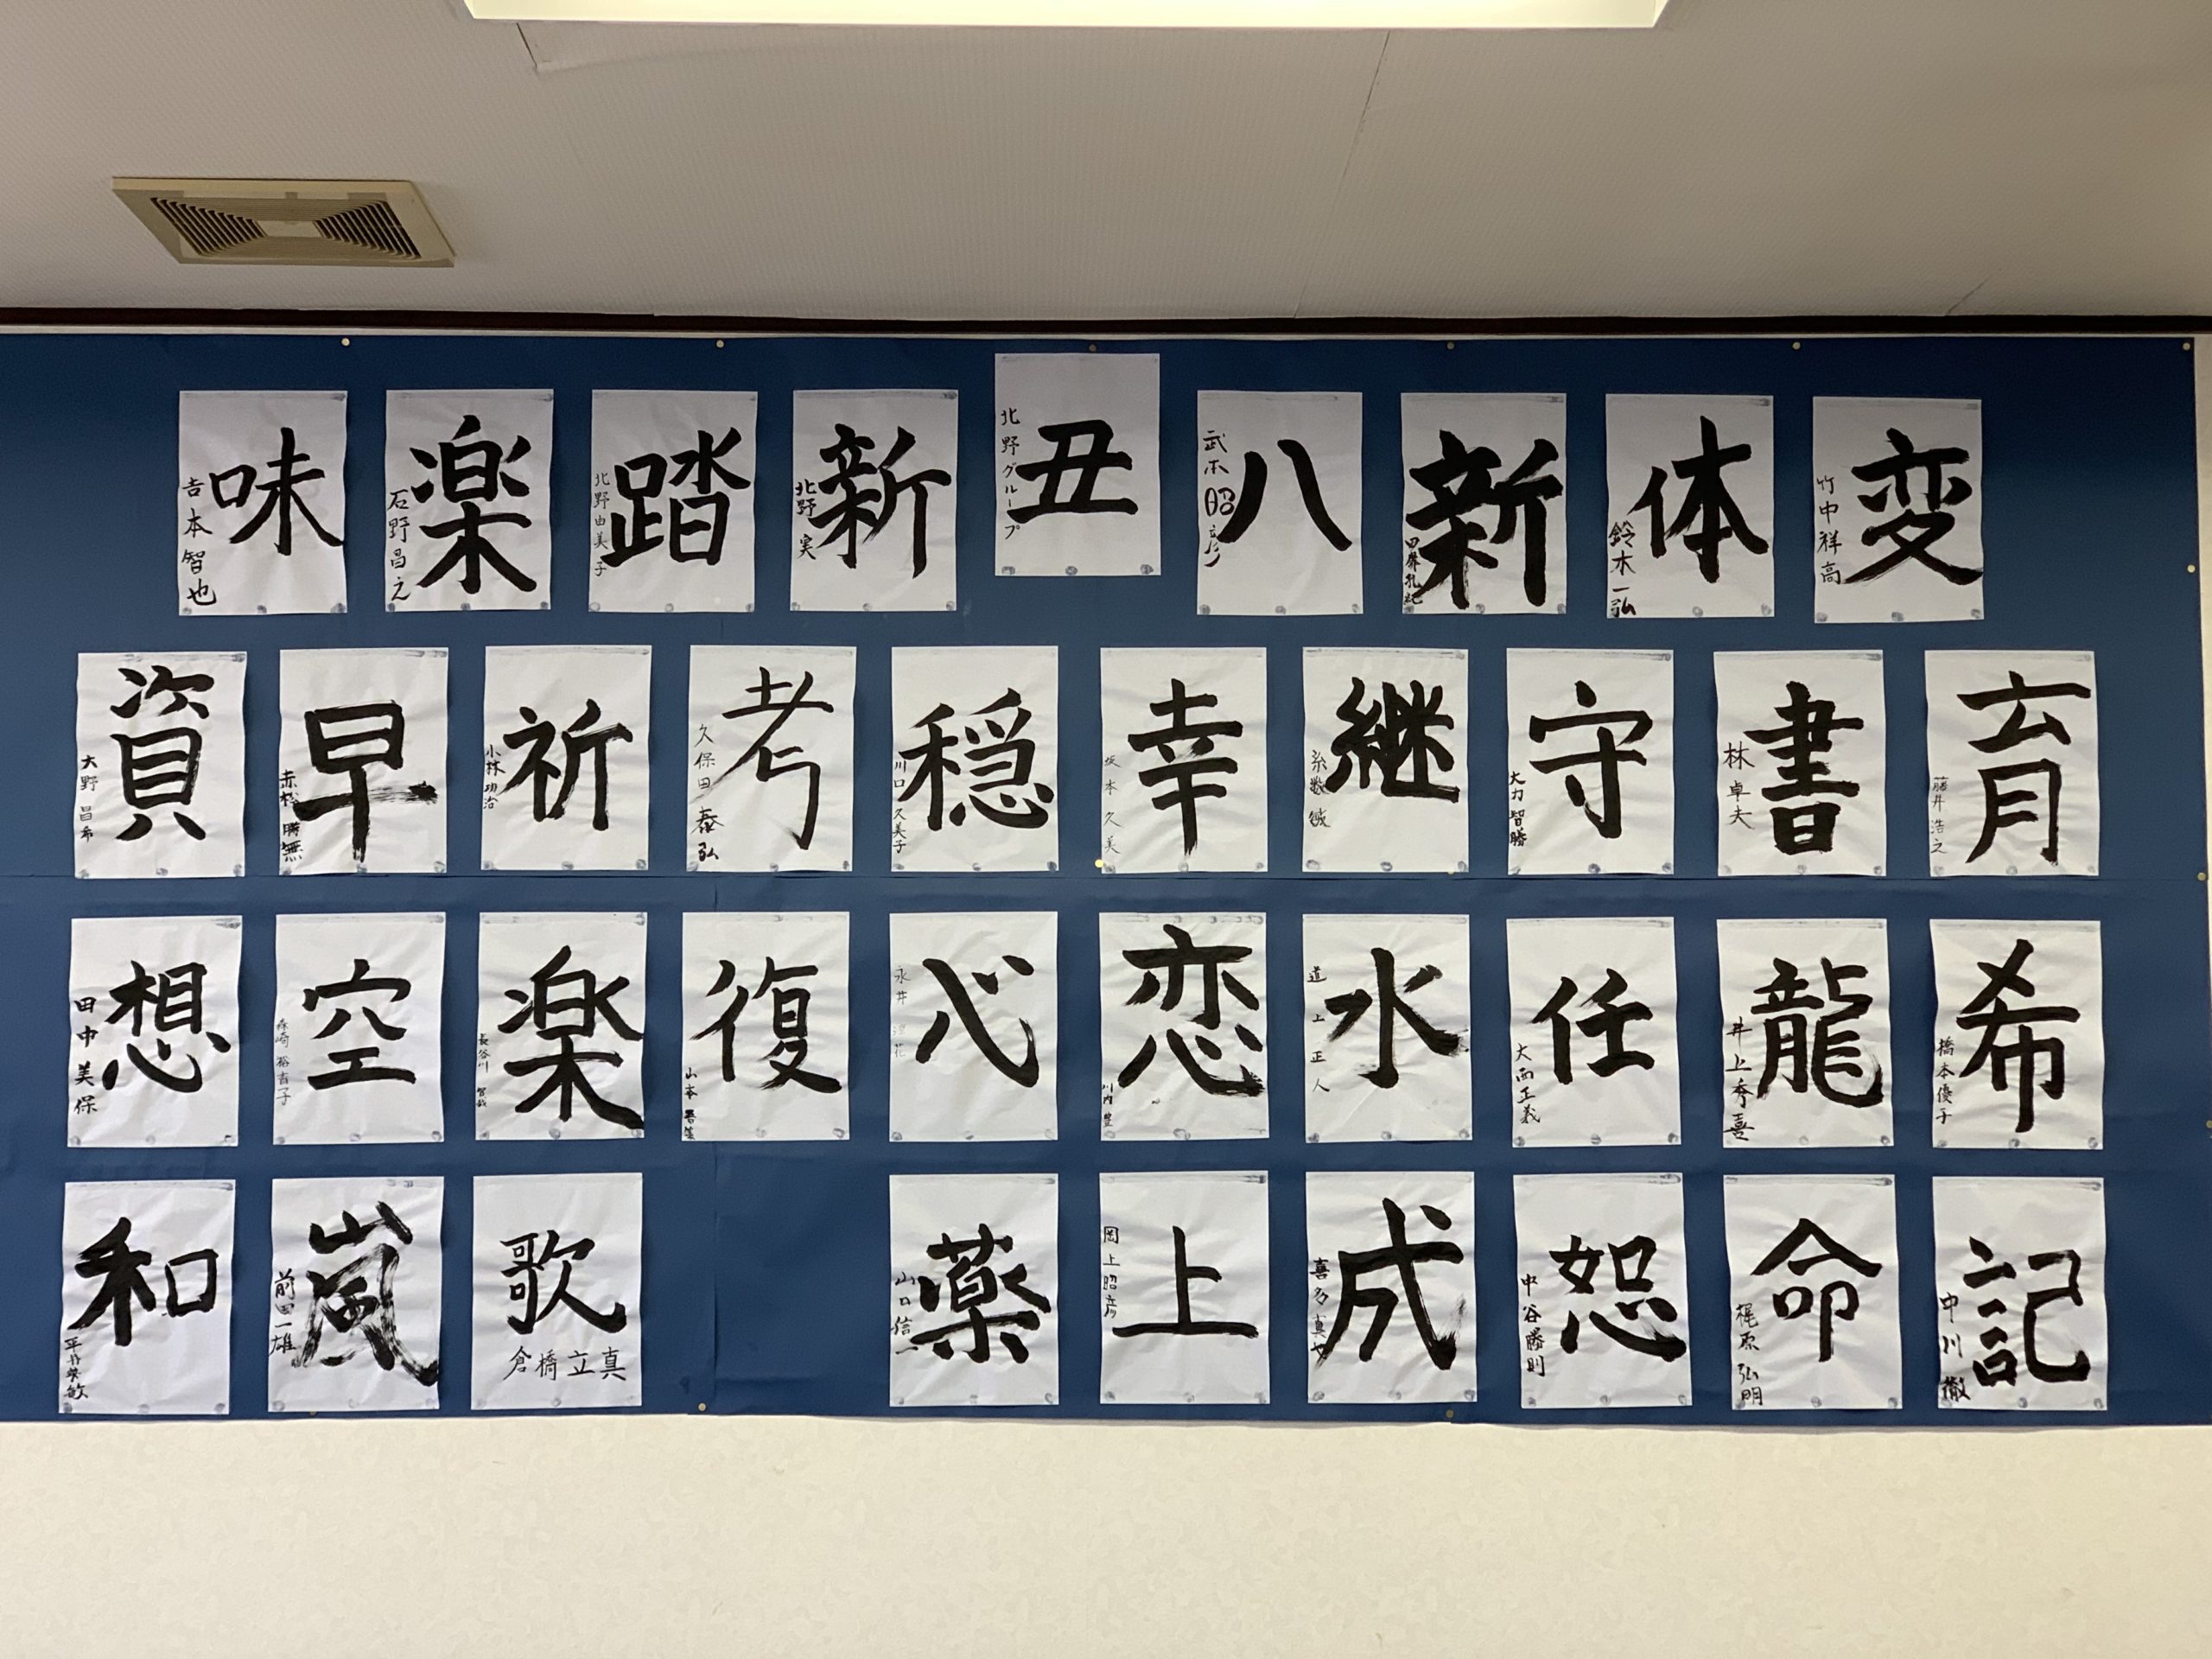 味
吉本智也
楽
石野昌之
踏
北野由美子
新
北野実
丑
北野グループ
八
武木昭彦
新
体
鈴木一弘
変
竹中祥高
資
大野昌希
早
赤松勝無
祈
小林功治
考
久保田泰弘
穏
川口久美子
幸
坂本久美
継
糸数
守
大力智勝
書
林卓夫
育
藤井浩之
想
田中美保
空
森崎裕吉子
楽
長谷川
復
山本
心
永井
恋
川内豊
水
道上正人
任
大西正義
龍
井上秀喜
希
橋本優子
和
平井英敏
嵐
前田一雄
歌
倉橋立真
薬
山口信一
上
岡上昭彦
成
喜多真也
恕
中谷勝則
命
梶原弘明
記
中川徹